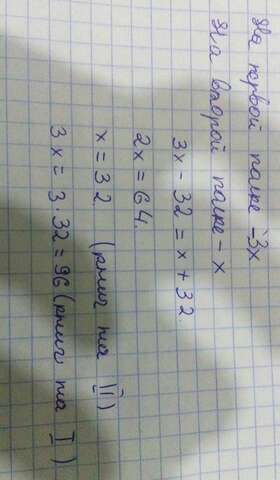 На первой полке - 3x
На второй полке - x
3x - 32 = x + 32.
2x = 64.
x = 32 (книг на II)
3x = 3·32 = 96 (книг на I)